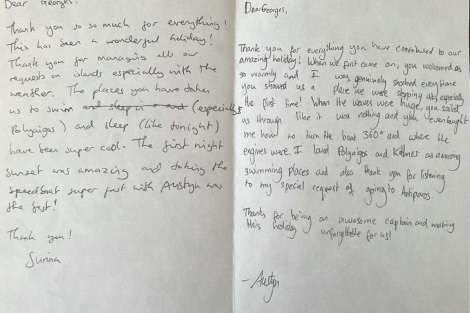 Dear Georges,
Thank you so so much for everything!
This has been a wonderful holiday!
Thank you for managing all our
requests on islands especially with the
weather. The places you have taken
us to swim and sleep in (especially
Polyaigos) and sleep (like tonight)
have been super cool. The first night
sunset was amazing and taking the
speedboat super fast with Austyn was
the best!
Thank you!
Sunna
Dear Georges,
Thank you for everything you have contributed to our
amazing holiday! When we first came on, you welcomed us
so warmly and I was genuinely shocked everytime
you showed us a place we were stopping at, especially
the first time! When the waves were huge, you sailed
us through like it was nothing and you even taught
me how to turn the boat 360° and where the
engines were. I loved Polyaigos and as amazing
swimming places and also thank you for listening
to my special request of going to Antiparos.
Thanks for being an awesome captain and making
this holiday unforgettable for us!
- Austyn